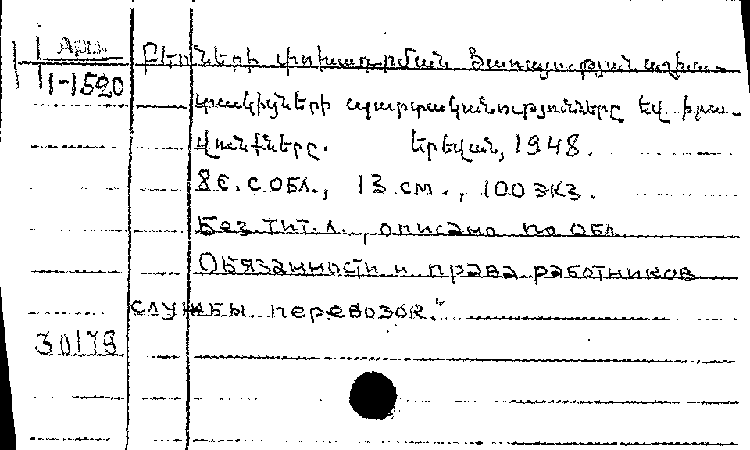 Арм.
1-1520
Բեռների փոխադրման ծառայության աշխա-
տակիցների պարտականությունները եվ իրա-
վունքները. Երեվան, 1948.
8 է. с обл., 13 см., 100 экз.
Без тит. л., описано по обл.
Обязанности и права работников
службы перевозок."
30178